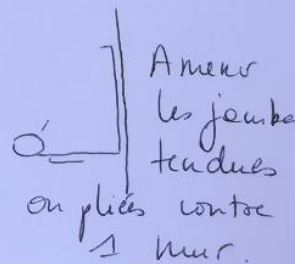 Amener
les jambes
tendues
ou pliées contre
1 mur.